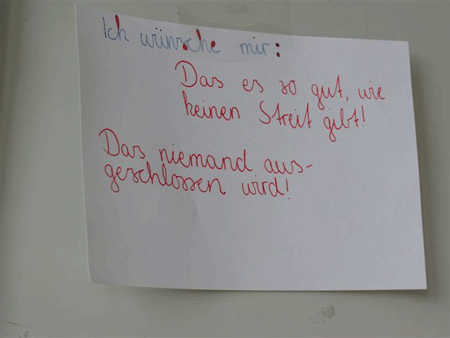 Ich wünsche mir:
Das es so gut, wie
keinen Streit gibt!
Das niemand aus-
geschlossen wird!